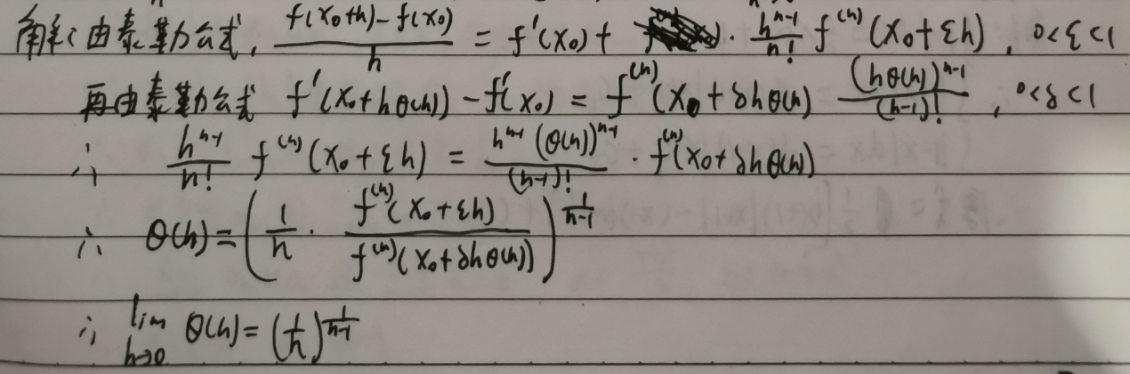 解: 由泰勒公式, \frac{f(x_0+h)-f(x_0)}{h} = f'(x_0) + \cdot \frac{h^{n-1}}{n!} f^{(n)}(x_0+εh), 0<ε<1
再由泰勒公式 f'(x_0+hθ(h)) - f'(x_0) = f^{(n)}(x_0+δhθ(h)) \frac{(hθ(h))^{n-1}}{(n-1)!}, 0<δ<1
∴ \frac{h^{n-1}}{n!} f^{(n)}(x_0+εh) = \frac{h^{n-1}(θ(h))^{n-1}}{(n-1)!} \cdot f^{(n)}(x_0+δhθ(h))
∴ θ(h) = \left( \frac{1}{n} \cdot \frac{f^{(n)}(x_0+εh)}{f^{(n)}(x_0+δhθ(h))} \right)^{\frac{1}{n-1}}
∴ \lim_{h→0} θ(h) = (\frac{1}{n})^{\frac{1}{n-1}}